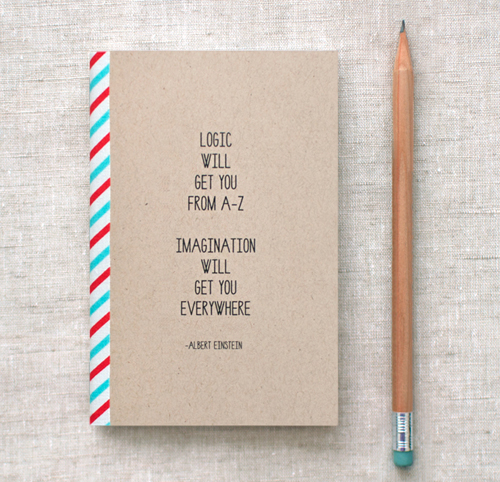 LOGIC
WILL
GET YOU
FROM A-Z
IMAGINATION
WILL
GET YOU
EVERYWHERE
-ALBERT EINSTEIN